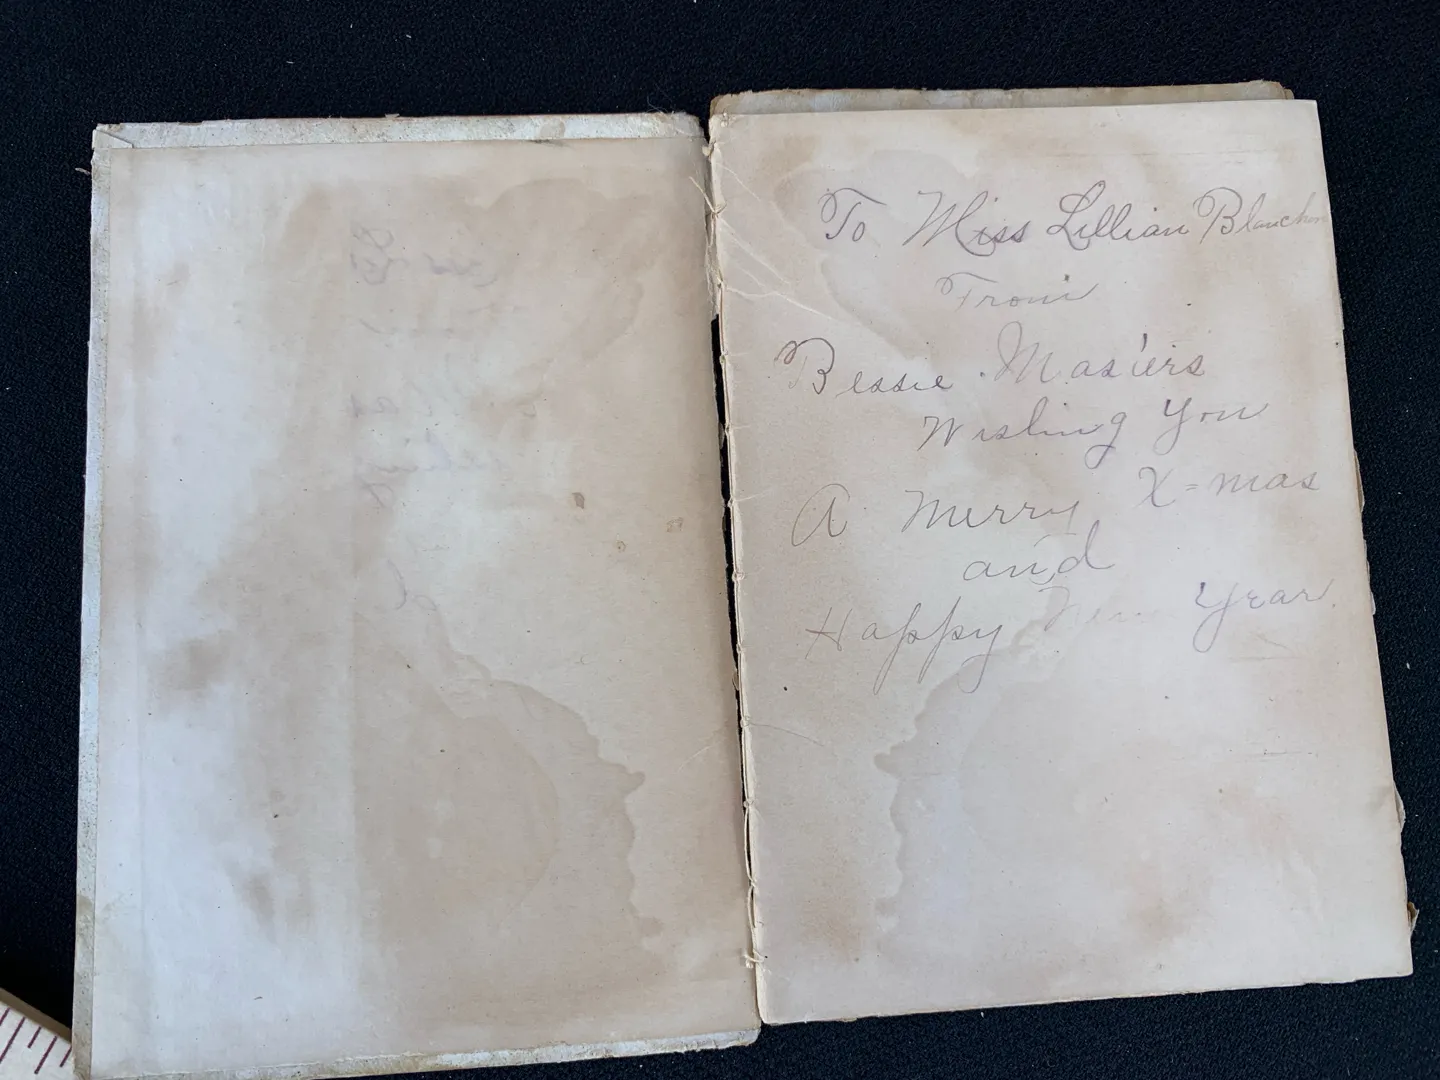 To Miss Lillian Blanchon
From
Bessie Masters
Wishing You
A Merry X=mas
and
Happy New Year.